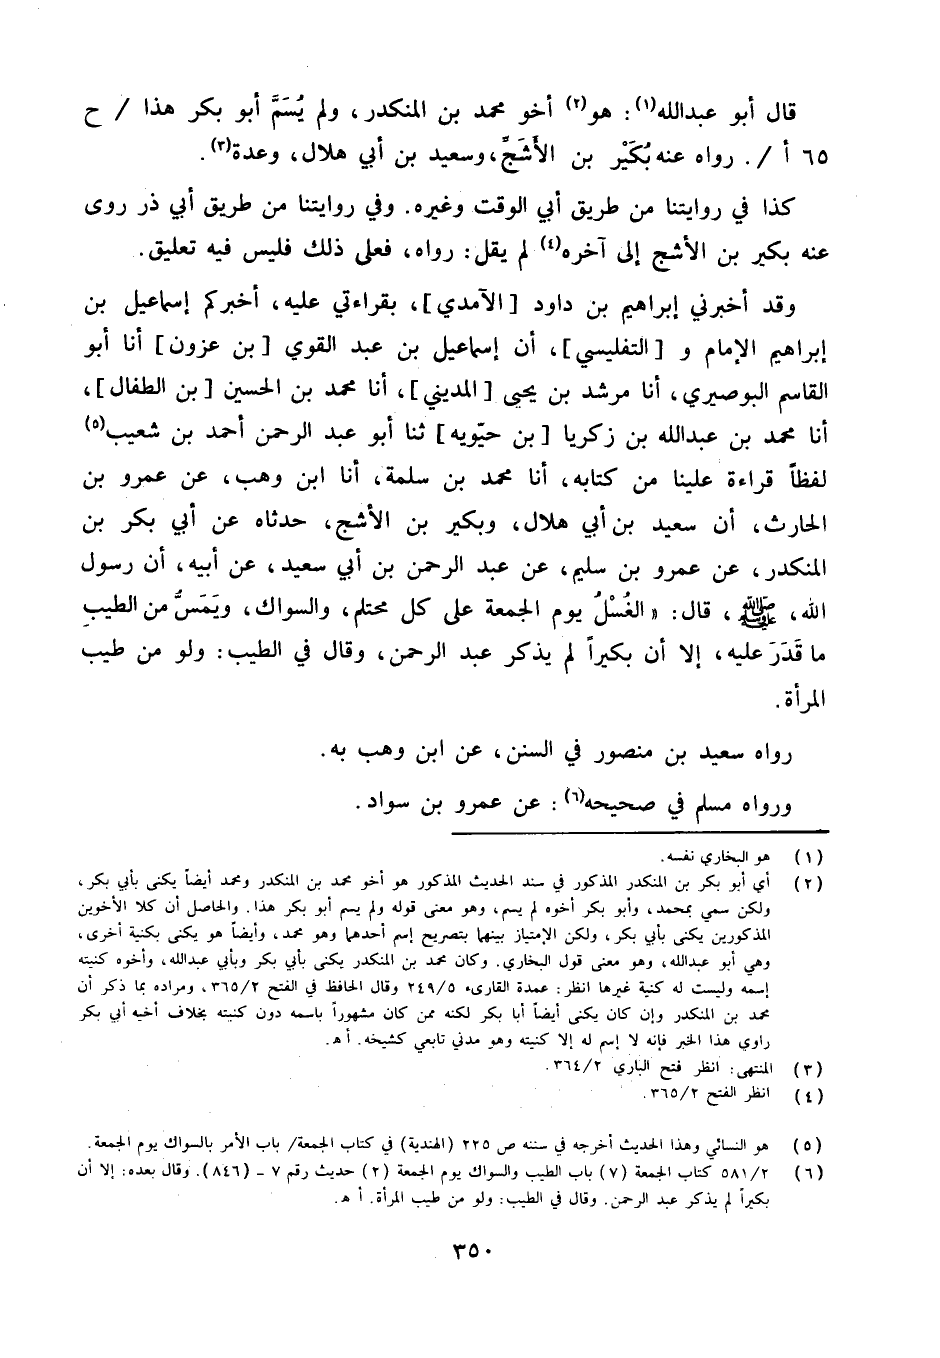 قال أبو عبدالله(١): هو(٢) أخو محمد بن المنكدر، ولم يُسَمَّ أبو بكر هذا / ح
٦٥ أ /. رواه عنه بُكَيْر بن الأَشَجِّ، وسعيد بن أبي هلال، وعدة(٣).
كذا في روايتنا من طريق أبي الوقت وغيره. وفي روايتنا من طريق أبي ذر روى
عنه بكير بن الأشج إلى آخره(٤) لم يقل: رواه، فعلى ذلك فليس فيه تعليق.
وقد أخبرني إبراهيم بن داود [الآمدي]، بقراءتي عليه، أخبركم إسماعيل بن
إبراهيم الإمام و [التفليسي]، أن إسماعيل بن عبد القوي [بن عزون] أنا أبو
القاسم البوصيري، أنا مرشد بن يحيى [المديني]، أنا محمد بن الحسين [بن الطفال]،
أنا محمد بن عبدالله بن زكريا [بن حيّويه] ثنا أبو عبد الرحمن أحمد بن شعيب(٥)
لفظاً قراءة علينا من كتابه، أنا محمد بن سلمة، أنا ابن وهب، عن عمرو بن
الحارث، أن سعيد بن أبي هلال، وبكير بن الأشج، حدثاه عن أبي بكر بن
المنكدر، عن عمرو بن سليم، عن عبد الرحمن بن أبي سعيد، عن أبيه، أن رسول
الله، ﷺ، قال: «الغُسْلُ يوم الجمعة على كل محتلم، والسواك، ويَمَسُّ من الطيبِ
ما قَدَرَ عليه، إلا أن بكيراً لم يذكر عبد الرحمن، وقال في الطيب: ولو من طيب
المرأة.
رواه سعيد بن منصور في السنن، عن ابن وهب به.
ورواه مسلم في صحيحه(٦): عن عمرو بن سواد.
(١) هو البخاري نفسه.
(٢) أي أبو بكر بن المنكدر المذكور في سند الحديث المذكور هو أخو محمد بن المنكدر ومحمد أيضاً يكنى بأبي بكر،
ولكن سمي بمحمد، وأبو بكر أخوه لم يسم، وهو معنى قوله ولم يسم أبو بكر هذا. والحاصل أن كلا الأخوين
المذكورين يكنى بأبي بكر، ولكن الإمتياز بينها بتصريح إسم أحدهما وهو محمد، وأيضاً هو يكنى بكنية أخرى،
وهي أبو عبدالله، وهو معنى قول البخاري. وكان محمد بن المنكدر يكنى بأبي بكر وبأبي عبدالله، وأخوه كنيته
إسمه وليست له كنية غيرها انظر: عمدة القارىء ٢٤٩/٥ وقال الحافظ في الفتح ٣٦٥/٢، ومراده بما ذكر أن
محمد بن المنكدر وإن كان يكنى أيضاً أبا بكر لكنه ممن كان مشهوراً باسمه دون كنيته بخلاف أخيه أبي بكر
راوي هذا الخبر فإنه لا إسم له إلا كنيته وهو مدني تابعي كشيخه. أ هـ.
(٣) المنتهى: انظر فتح الباري ٣٦٤/٢.
(٤) انظر الفتح ٣٦٥/٢.
(٥) هو النسائي وهذا الحديث أخرجه في سننه ص ٢٢٥ (الهندية) في كتاب الجمعة/ باب الأمر بالسواك يوم الجمعة.
(٦) ٥٨١/٢ كتاب الجمعة (٧) باب الطيب والسواك يوم الجمعة (٢) حديث رقم ٧ – (٨٤٦). وقال بعده: إلا أن
بكيراً لم يذكر عبد الرحمن. وقال في الطيب: ولو من طيب المرأة. أ هـ.
٣٥٠